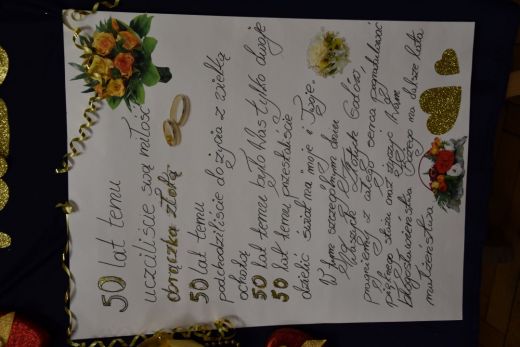 50 lat temu
uczciliście swą miłość
obrączką złotą
50 lat temu
podchodziliście do życia z wielką
ochotą
50 lat temu było Was tylko dwoje
50 lat temu przestaliście
dzielić świat na moje i Twoje.
W tym szczególnym dniu
Waszych Złotych Godów,
pragniemy z całego serca pogratulować
pięknego stażu oraz życzyć Wam
błogosławieństwa Bożego na dalsze lata
małżeństwa